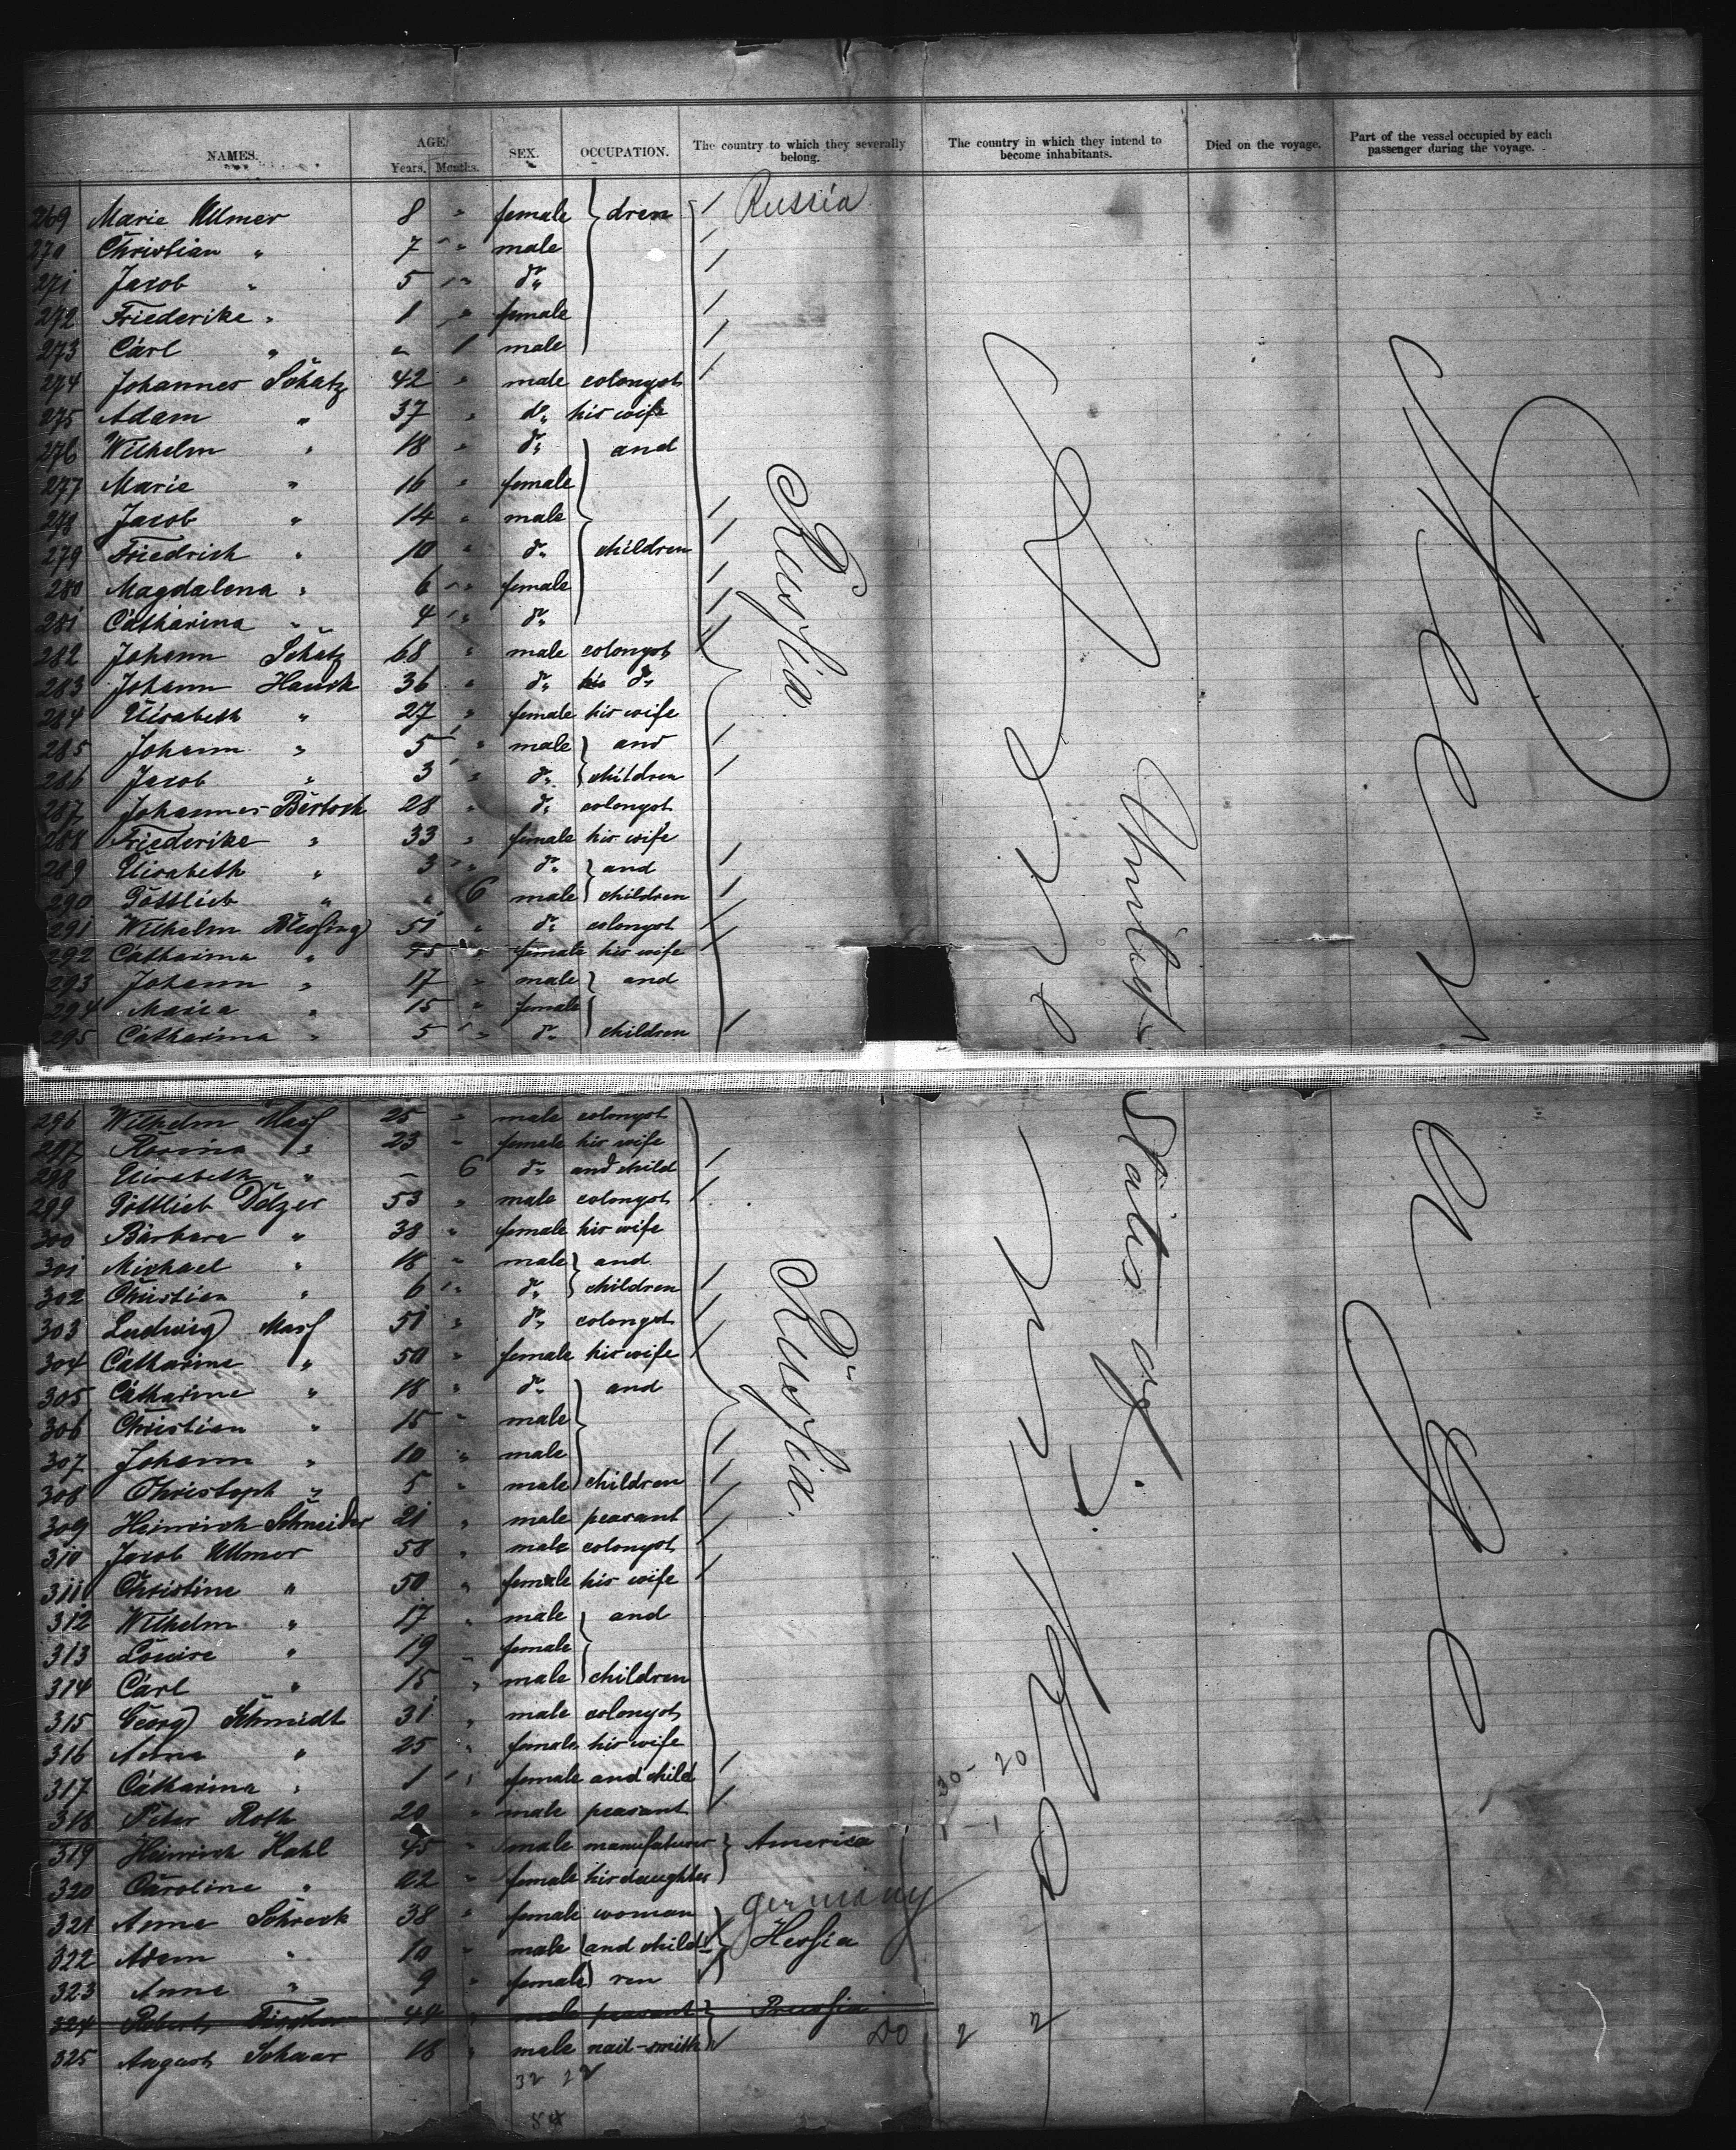 NAMES. AGE Years. Months. SEX. OCCUPATION. The country to which they severally belong. The country in which they intend to become inhabitants. Died on the voyage. Part of the vessel occupied by each passenger during the voyage.
269 Marie Ullmer 8 " female dren Russia
270 Christian " 7 " male
271 Jacob " 5 " do
272 Friederike " 1 " female
273 Carl " " 1 male
274 Johannes Schatz 42 " male colongst
275 Adam " 37 " do his wife
276 Wilhelm " 18 " do and
277 Marie " 16 " female
278 Jacob " 14 " male
279 Friedrich " 10 " do children
280 Magdalena " 6 " female
281 Catharina " 4 " do
282 Johann Schatz 68 " male colongst
283 Johann Hauck 36 " do his do
284 Elisabeth " 27 " female his wife
285 Johann " 5 " male and
286 Jacob " 3 " do children
287 Johannes Bertsch 28 " do colongst
288 Friederike " 33 " female his wife
289 Elisabeth " 3 " do and
290 Gottlieb " " 6 male children
291 Wilhelm Blessing 51 " do colongst
292 Catharina " 45 " female his wife
293 Johann " 17 " male and
294 Maria " 15 " female
295 Catharina " 5 " do children
Russia.
United States of
296 Wilhelm Mass 25 " male colongst
297 Rosina " 23 " female his wife
298 Elisabeth " - 6 do and child
299 Gottlieb Delzer 53 " male colongst
300 Barbara " 38 " female his wife
301 Michael " 18 " male and
302 Christian " 6 " do children
303 Ludwig Mass 51 " do colongst
304 Catharine " 50 " female his wife
305 Catharine " 18 " do and
306 Christian " 15 " male
307 Johann " 10 " male
308 Christoph " 5 " male children
309 Heinrich Schneider 21 " male peasant
310 Jacob Ullmer 58 " male colongst
311 Christine " 50 " female his wife
312 Wilhelm " 17 " male and
313 Louise " 19 " female
314 Carl " 15 " male children
315 Georg Schmidt 31 " male colongst
316 Anna " 25 " female his wife
317 Catharina " 1 " female and child
318 Peter Roth 20 " male peasant
Russia.
30 - 20
1 - 1
319 Heinrich Hahl 45 " male manufaturer America
320 Caroline " 22 " female his daughter
321 Anna Schreck 38 " female woman germany
322 Adam " 10 " male and child- Hessia
323 Anna " 9 " female ren
324 Robert Fischer 44 " male peasant Prussia
325 August Schaar 18 " male nail-smith do 2 2
32 22
54